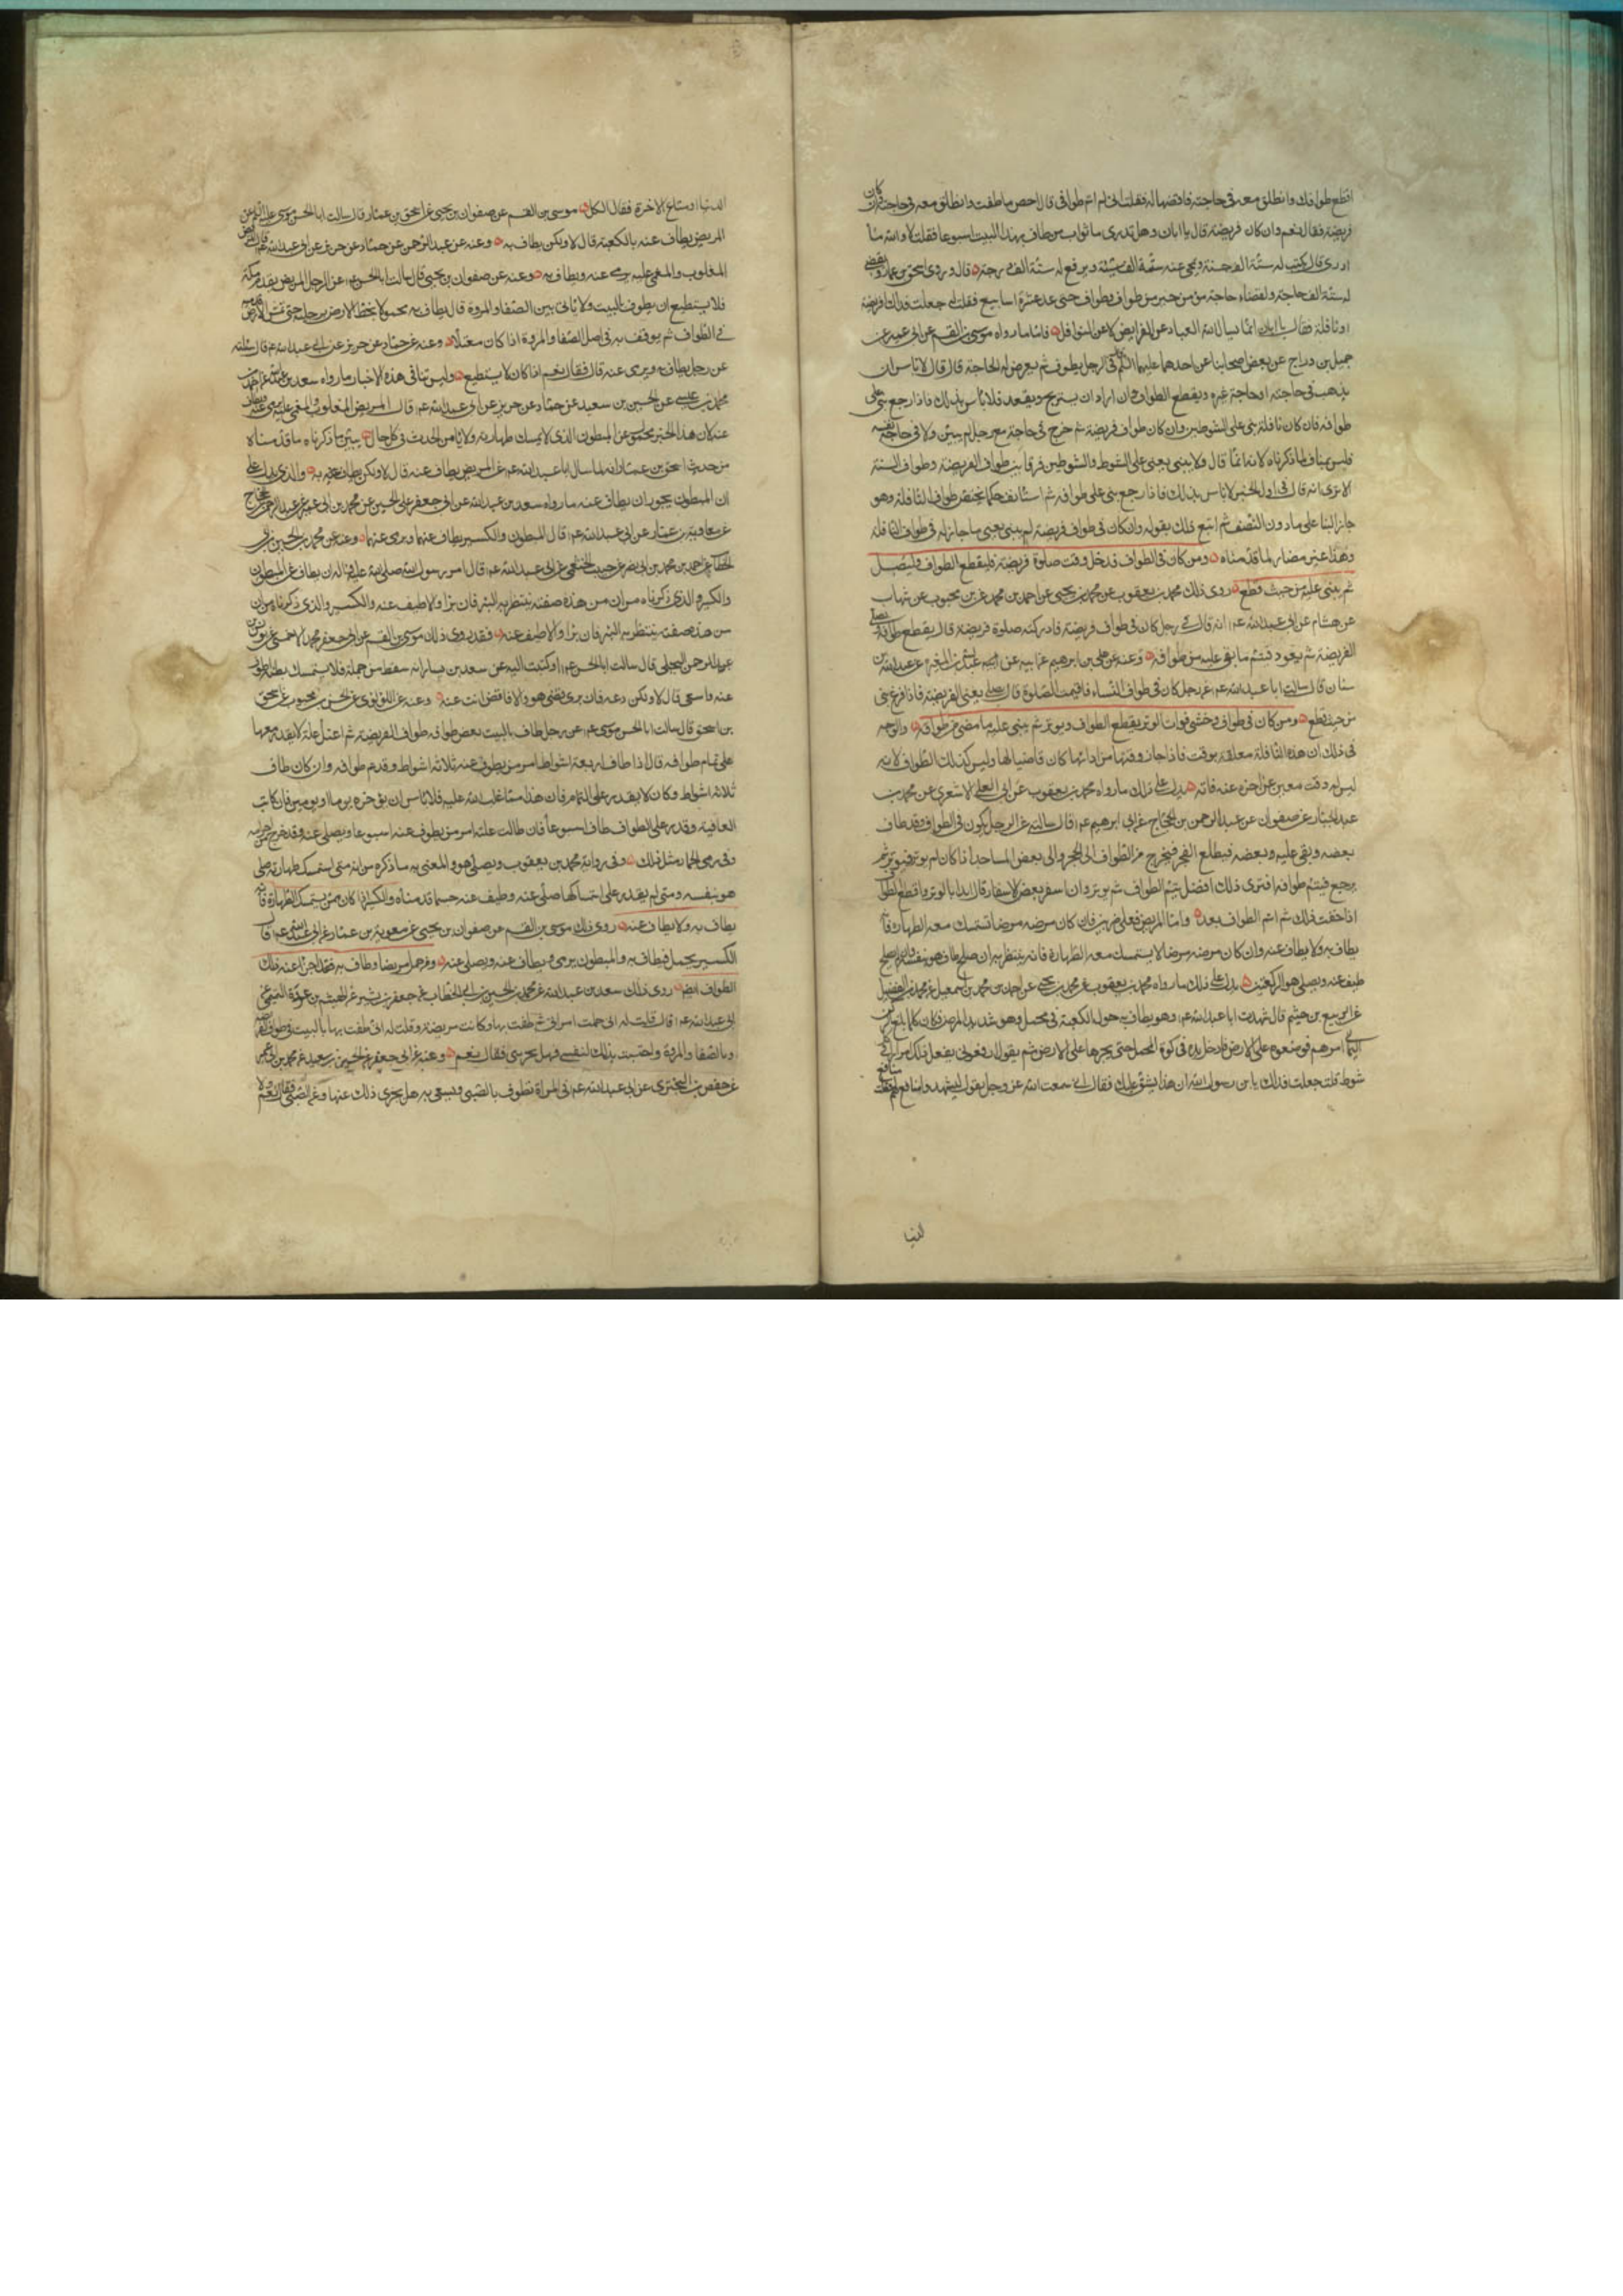 اقطع طوافك وانطلق معه في حاجته فاقضها له فقلت اني لم اتم طوافي قال احص ما طفت وانطلق معه في حاجته فقلت وان كان
فريضة فقال نعم وان كان فريضة قال يا ابان وهل تدري ما ثواب من طاف بهذا البيت اسبوعا فقلت لا والله ما
ادري قال يكتب له ستة الف حسنة ويمحى عنه ستة الف سيئة ويرفع له ستة الف درجة قال وروى اسحق بن عمار ويقضى
له ستة الف حاجة ولقضاء حاجة مؤمن خير من طواف وطواف حتى عد عشرة اسابيع فقلت له جعلت فداك افريضة
او نافلة فقال يا ابان انما يسال الله العباد عن الفرايض لا عن النوافل فاما ما رواه موسى بن القسم عن ابن ابي عمير عن
جميل بن دراج عن بعض اصحابنا عن احدهما عليهما السلام في الرجل يطوف ثم يعرض له الحاجة قال قال لا باس ان
يذهب في حاجته او حاجة غيره ويقطع الطواف وان اراد ان يستريح ويقعد فلا باس بذلك فاذا رجع بنى على
طوافه فان كان نافلة بنى على الشوطين وان كان طواف فريضة ثم خرج في حاجة مع رجل لم يبن ولا في حاجة نفسه
فليس بمناف لما ذكرناه لانه انما قال ولا يبني يعني على الشوط والشوطين فرقا بين طواف الفريضة وطواف السنة
الا ترى انه قال في اول الخبر لا باس بذلك فاذا رجع بنى على طوافه ثم استانف حكما يختص طواف النافلة وهو
جواز البنا على ما دون النصف ثم اتبع ذلك بقوله وان كان في طواف فريضة لم يبن يعني ما جاز له في طواف النافلة
وهذا غير مضاد لما قدمناه ومن كان في الطواف فدخل وقت صلوة فريضة فليقطع الطواف وليصل
ثم يبني عليه من حيث قطع روى ذلك محمد بن يعقوب عن محمد بن يحيى عن احمد بن محمد عن بن محبوب عن شهاب
عن هشام عن ابي عبدالله عم انه قال في رجل كان في طواف فريضة فادركته صلوة فريضة قال يقطع طوافه ويصلي
الفريضة ثم يعود فيتم ما بقي عليه من طوافه وعنه عن علي بن ابرهيم عن ابيه عن عبدالله بن المغيرة عن عبدالله بن
سنان قال سالت ابا عبدالله عم عن رجل كان في طواف النساء فاقيمت الصلوة قال يصلي يعني الفريضة فاذا فرغ بنى
من حيث قطع ومن كان في طواف وخشي فوات الوتر يقطع الطواف ويوتر ثم يبني عليه ما مضى من طوافه والوجه
في ذلك ان هذه النافلة معلقة بوقت فاذا جاز وقتها من ادائها كان قاضيا لها وليس كذلك الطواف لانه
ليس له وقت معين عن اخره عنه فاته يدل على ذلك ما رواه محمد بن يعقوب عن ابي العلى الاشعري عن محمد بن
عبد الجبار عن صفوان عن عبدالرحمن بن الحجاج عن ابي ابرهيم عم قال سالته عن الرجل يكون في الطواف وقد طاف
بعضه وبقي عليه وبعضه فيطلع الفجر فيخرج من الطواف الى الحجر والى بعض المساجد اذا كان لم يوتر فيوتر ثم
يرجع فيتم طوافه افترى ذلك افضل يتم الطواف ثم يوتر وان اسفر بعض الاسفار قال ابدا بالوتر واقطع الطواف
اذا خفت ذلك ثم اتم الطواف بعد واما المريض فعلى ضربين فان كان مرضه مرضا تستمسك معه الطهارة فانه
يطاف به ولا يطاف عنه وان كان مرضه مرضا لا يستمسك معه الطهارة فانه ينتظر به ان صلح طاف هو بنفسه وان لم يصلح
طيف عنه ويصلي هو الركعتين يدل على ذلك ما رواه محمد بن يعقوب عن محمد بن يحيى عن احمد بن محمد بن اسمعيل عن محمد بن الفضيل
عن الربيع بن خيثم قال شهدت ابا عبدالله عم وهو يطاف به حول الكعبة في محمل وهو شديد المرض فكان كلما بلغ الركن
اليماني امرهم فوضعوه على الارض فادخل يده في كوة المحمل حتى يجرها على الارض ثم يقول ارفعوني يفعل ذلك مرارا في كل
شوط قلت جعلت فداك يا بن رسول الله ان هذا يشق عليك فقال اني سمعت الله عز وجل يقول ليشهدوا منافع لهم فقلت منافع
الدنيا
الدنيا او منافع الاخرة فقال الكل موسى بن القسم عن صفوان بن يحيى عن اسحق بن عمار قال سالت ابا الحسن موسى عليه السلم عن
المريض يطاف عنه بالكعبة قال لا ولكن يطاف به وعنه عن عبدالرحمن عن حماد عن حريز عن ابي عبدالله عم قال المريض
المغلوب والمغمى عليه يرمى عنه ويطاف به وعنه عن صفوان بن يحيى قال سالت ابا الحسن عم عن الرجل المريض يقدم مكة
فلا يستطيع ان يطوف بالبيت ولا ياتي بين الصفا والمروة قال يطاف به محمولا يخط الارض برجليه حتى تمس الارض قدميه
في الطواف ثم يوقف به في اصل الصفا والمروة اذا كان معتلا وعنه عن حماد عن حريز عن ابي عبدالله عم قال سالته
عن رجل يطاف به ويرمى عنه قال فقال نعم اذا كان لا يستطيع وليس تنافي هذه الاخبار ما رواه سعد بن عبدالله عن احمد بن
محمد بن عيسى عن الحسين بن سعيد عن حماد عن حريز عن ابي عبدالله عم قال المريض المغلوب والمغمى عليه يرمى عنه ويطاف
عنه لان هذا الخبر محمول عن المبطون الذي لا يمسك طهارته ولا يامن الحدث في كل حال يبين ما ذكرناه ما قدمناه
من حديث اسحق بن عمار انه لما سال ابا عبدالله عم عن المريض يطاف عنه قال لا ولكن يطاف به والذي يدل على
ان المبطون يجوز ان يطاف عنه ما رواه سعد بن عبدالله عن ابي جعفر عن الحسين عن محمد بن ابي عمير عن عبدالرحمن بن الحجاج
عن معاوية بن عمار عن ابي عبدالله عم قال المبطون والكسير يطاف عنهما ويرمى عنهما وعنه عن محمد بن الحسين بن ابي
الخطاب عن احمد بن محمد بن ابي نصر عن حبيب الخثعمي عن ابي عبدالله عم قال امر رسول الله صلى الله عليه واله ان يطاف عن المبطون
والكسير والذي ذكرناه من ان من هذه صفته ينتظر به البرء فان برا والا طيف عنه والكسير والذي ذكرناه من ان
من هذه صفته ينتظر به البرء فان برا والا طيف عنه فقد روى ذلك موسى بن القسم عن ابي جعفر محمد الاحمسي عن يونس بن
عبدالرحمن البجلي قال سالت ابا الحسن عم او كتبت اليه عن سعد بن يسار انه سقط من جمله فلا يستمسك بطنه اطوف
عنه واسعى قال لا ولكن دعه فان برى يقضي هو والا فاقض انت عنه وعنه عن اللؤلؤي عن الحسن بن محبوب عن اسحق
بن اسحق قال سالت ابا الحسن موسى عم عن رجل طاف بالبيت بعض طوافه طواف الفريضة ثم اعتل علة لا يقدر معها
على تمام طوافه قال اذا طاف اربعة اشواط امر من يطوف عنه ثلاثة اشواط وقد تم طوافه وان كان طاف
ثلاثة اشواط وكان لا يقدر على التمام فان هذا مما غلب الله عليه فلا باس ان يؤخره يوما او يومين فان كانت
العافية وقدر على الطواف طاف اسبوعا فان طالت علته امر من يطوف عنه اسبوعا ويصلي عنه وقد خرج من احرامه
وفي رمي الجمار مثل ذلك وفي رواية محمد بن يعقوب ويصلي هو والمعنى به ما ذكره من انه متى استمسك طهارته صلى
هو بنفسه ومتى لم يقدر على امساكها صلى عنه وطيف عنه حسبما قدمناه والكسير اذا كان ممن يستمسك الطهارة فانه
يطاف به ولا يطاف عنه روى ذلك موسى بن القسم عن صفوان بن يحيى عن معوية بن عمار عن ابي عبدالله عم قال
الكسير يحمل فيطاف به والمبطون يرمى ويطاف عنه ويصلى عنه ومن حمل مريضا وطاف به فقد اجزا عنه ذلك
الطواف ايضا روى ذلك سعد بن عبدالله عن محمد بن الحسين بن ابي الخطاب عن جعفر بن بشير عن الهيثم بن عروة التميمي عن
ابي عبدالله عم قال قلت له اني حملت امراتي ثم طفت بها وكانت مريضة وقلت له اني طفت بها بالبيت في طواف الفريضة
وبالصفا والمروة واحتسبت بذلك لنفسي فهل يجزيني فقال نعم وعنه عن ابي جعفر عن الحسين بن سعيد عن محمد بن ابي عمير
عن حفص بن البختري عن ابي عبدالله عم في المراة تطوف بالصبي وتسعى به هل يجزى ذلك عنها وعن الصبي فقال نعم